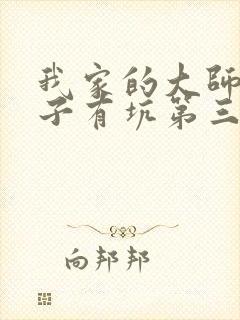 我家的大師
子有坑第三
向邦邦